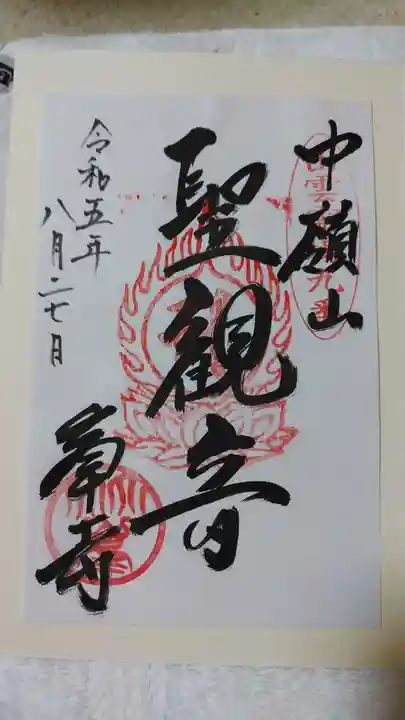 中嶺山
聖観音
峯寺
令和五年
八月二七日